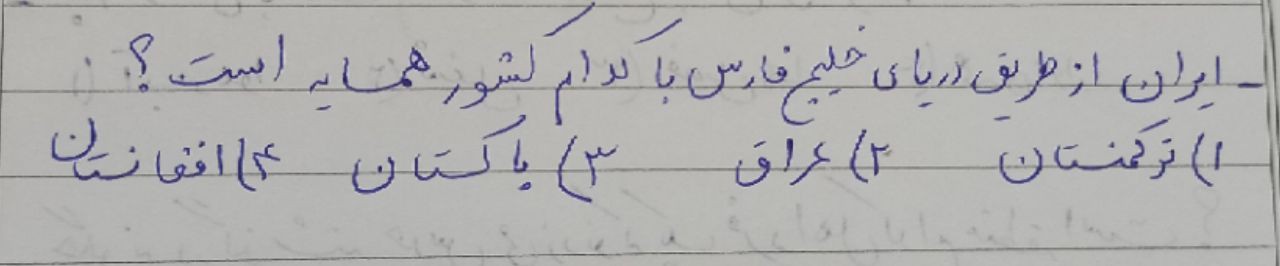 - ایران از طریق دریای خلیج فارس با کدام کشور همسایه است؟
۱) ترکمنستان ۲) عراق ۳) پاکستان ۴) افغانستان